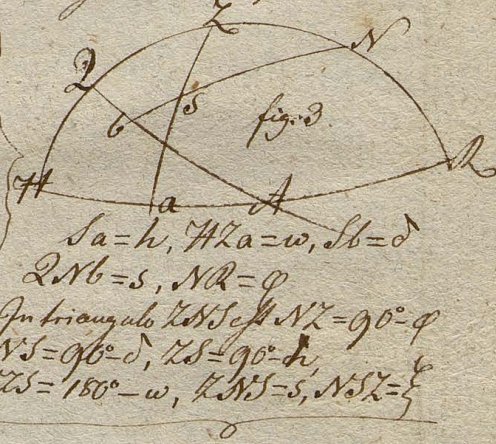 Z
N
Q
S
b
fig: 3.
R
H
a
A
Sa = h, HZa = w, Sb = δ
QNb = s, NR = φ
In triangulo ZNS est NZ = 90° - φ
NS = 90° - δ, ZS = 90° - h,
ZS = 180° - w, ZNS = s, NSZ = ξ